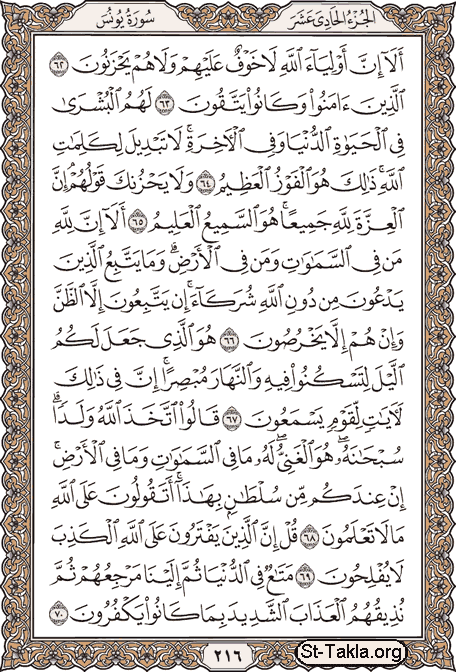 الجزء الحادي عشر
سورة يونس
أَلَآ إِنَّ أَوْلِيَآءَ ٱللَّهِ لَا خَوْفٌ عَلَيْهِمْ وَلَا هُمْ يَحْزَنُونَ ٦٢
ٱلَّذِينَ ءَامَنُوا۟ وَكَانُوا۟ يَتَّقُونَ ٦٣ لَهُمُ ٱلْبُشْرَىٰ
فِى ٱلْحَيَوٰةِ ٱلدُّنْيَا وَفِى ٱلْءَاخِرَةِ ۚ لَا تَبْدِيلَ لِكَلِمَٰتِ
ٱللَّهِ ۚ ذَٰلِكَ هُوَ ٱلْفَوْزُ ٱلْعَظِيمُ ٦٤ وَلَا يَحْزُنكَ قَوْلُهُمْ ۘ إِنَّ
ٱلْعِزَّةَ لِلَّهِ جَمِيعًا ۚ هُوَ ٱلسَّمِيعُ ٱلْعَلِيمُ ٦٥ أَلَآ إِنَّ لِلَّهِ
مَن فِى ٱلسَّمَٰوَٰتِ وَمَن فِى ٱلْأَرْضِ ۗ وَمَا يَتَّبِعُ ٱلَّذِينَ
يَدْعُونَ مِن دُونِ ٱللَّهِ شُرَكَآءَ ۚ إِن يَتَّبِعُونَ إِلَّا ٱلظَّنَّ
وَإِنْ هُمْ إِلَّا يَخْرُصُونَ ٦٦ هُوَ ٱلَّذِى جَعَلَ لَكُمُ
ٱلَّيْلَ لِتَسْكُنُوا۟ فِيهِ وَٱلنَّهَارَ مُبْصِرًا ۚ إِنَّ فِى ذَٰلِكَ
لَءَايَٰتٍ لِّقَوْمٍ يَسْمَعُونَ ٦٧ قَالُوا۟ ٱتَّخَذَ ٱللَّهُ وَلَدًا ۗ
سُبْحَٰنَهُۥ ۖ هُوَ ٱلْغَنِىُّ ۖ لَهُۥ مَا فِى ٱلسَّمَٰوَٰتِ وَمَا فِى ٱلْأَرْضِ ۚ
إِنْ عِندَكُم مِّن سُلْطَٰنٍۭ بِهَٰذَآ ۚ أَتَقُولُونَ عَلَى ٱللَّهِ
مَا لَا تَعْلَمُونَ ٦٨ قُلْ إِنَّ ٱلَّذِينَ يَفْتَرُونَ عَلَى ٱللَّهِ ٱلْكَذِبَ
لَا يُفْلِحُونَ ٦٩ مَتَٰعٌ فِى ٱلدُّنْيَا ثُمَّ إِلَيْنَا مَرْجِعُهُمْ ثُمَّ
نُذِيقُهُمُ ٱلْعَذَابَ ٱلشَّدِيدَ بِمَا كَانُوا۟ يَكْفُرُونَ ٧٠
٢١٦
St-Takla.org